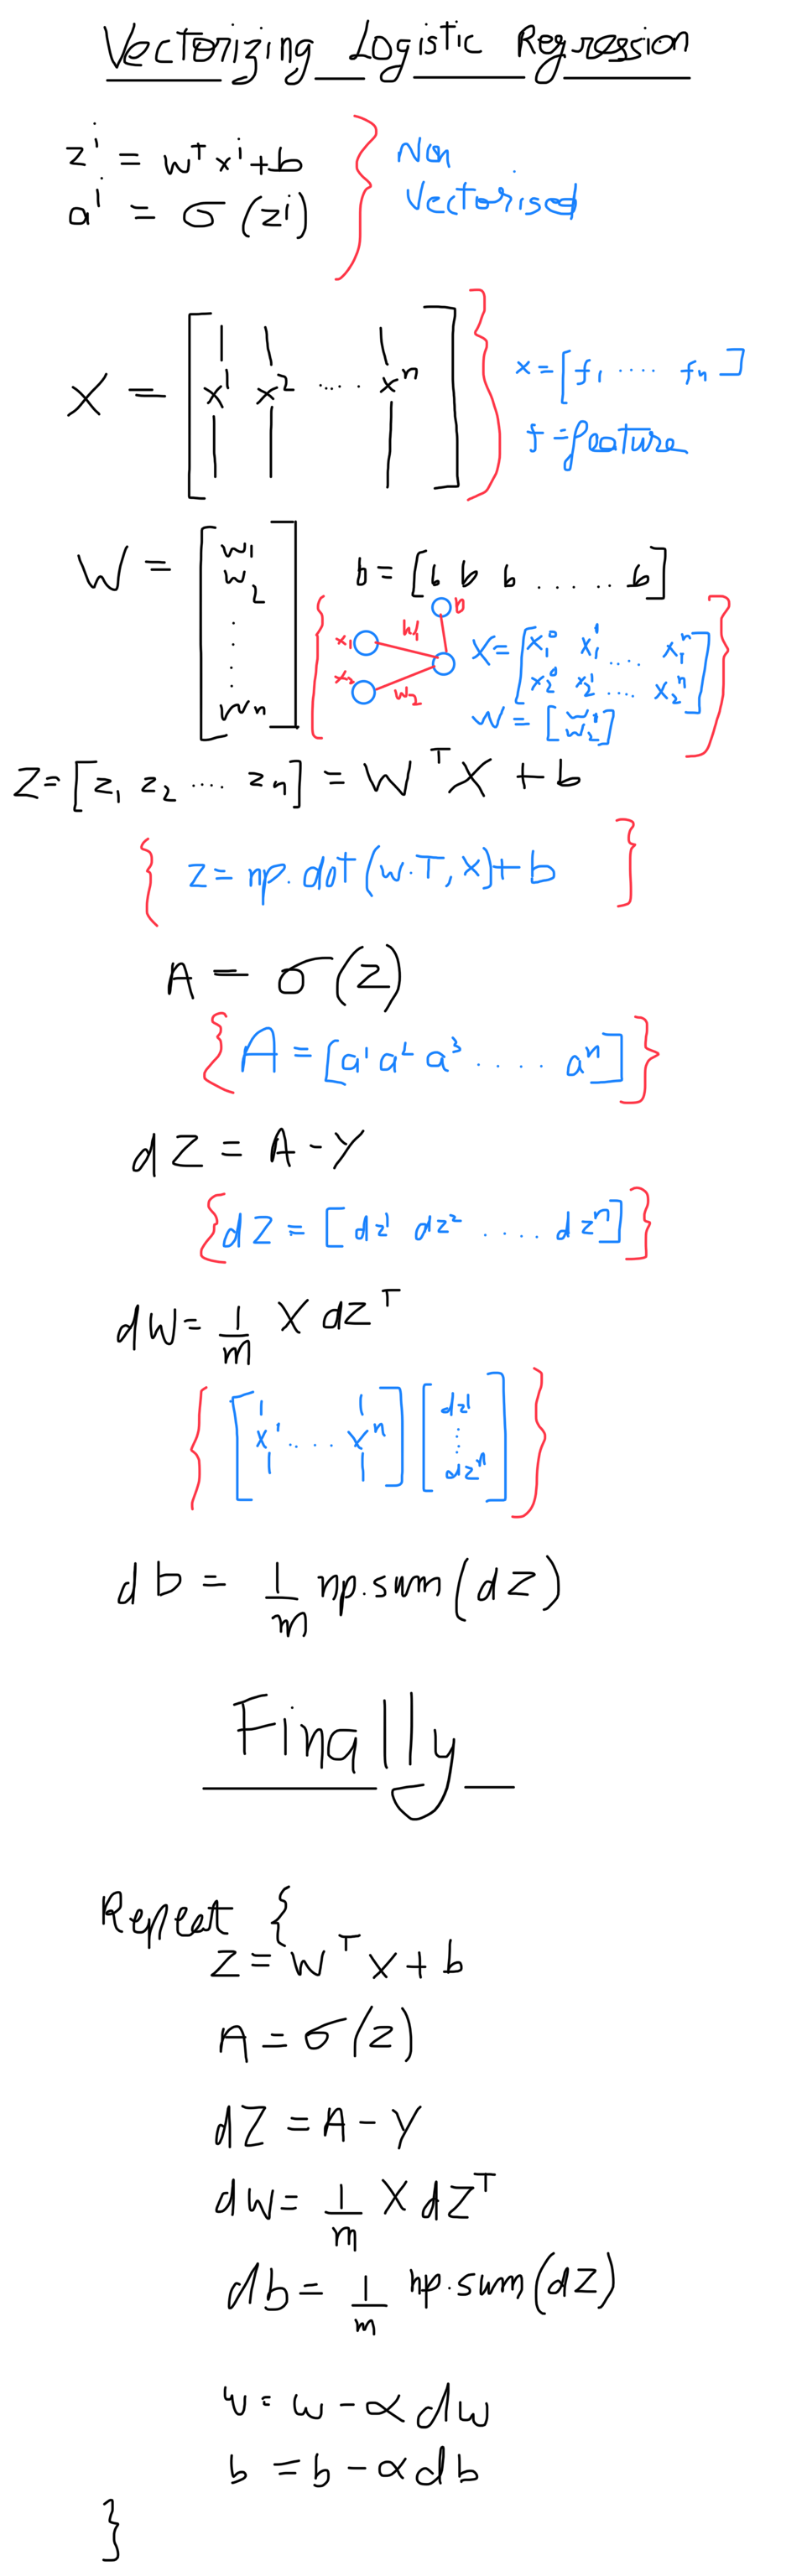 Vectorizing Logistic Regression
zⁱ = wᵀxⁱ+b } Non
aⁱ = σ(zⁱ) Vectorised
X = [x¹ x² ..... xⁿ] } x = [f₁ .... fₙ]
f = feature
W = [w₁ w₂ . . . . wₙ] b = [b b b ...... b]
{ x₁ w₁ b X = [x₁⁰ x₁¹ .... x₁ⁿ
x₂ w₂ x₂⁰ x₂¹ .... x₂ⁿ] }
W = [w₁ w₂]
Z = [z₁ z₂ .... zₙ] = WᵀX + b
{ z = np.dot(w.T, x)+b }
A = σ(z)
{ A = [a¹ a² a³ ..... aⁿ] }
dZ = A - Y
{ dZ = [dz¹ dz² ..... dzⁿ] }
dW = 1/m X dZᵀ
{ [x¹ ..... xⁿ] [dz¹ ⋮ dzⁿ] }
db = 1/m np.sum(dZ)
Finally
Repeat {
z = wᵀx + b
A = σ(z)
dZ = A - Y
dw = 1/m X dZᵀ
db = 1/m np.sum(dZ)
w = w - αdw
b = b - αdb
}